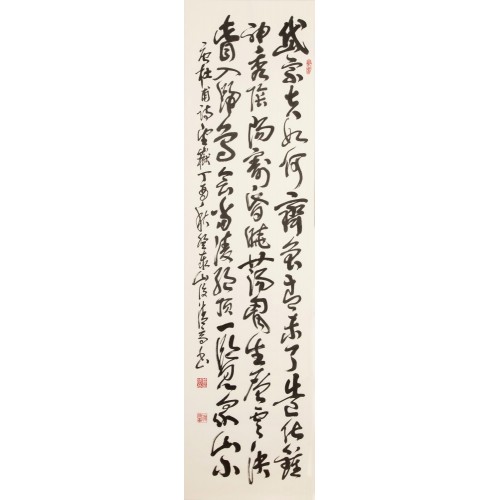 岱宗夫如何齊魯青未了造化鍾
神秀陰陽割昏曉蕩胸生層雲決
眥入歸鳥會當凌絕頂一覽眾山小
唐杜甫詩望嶽丁酉秋登泰山後書